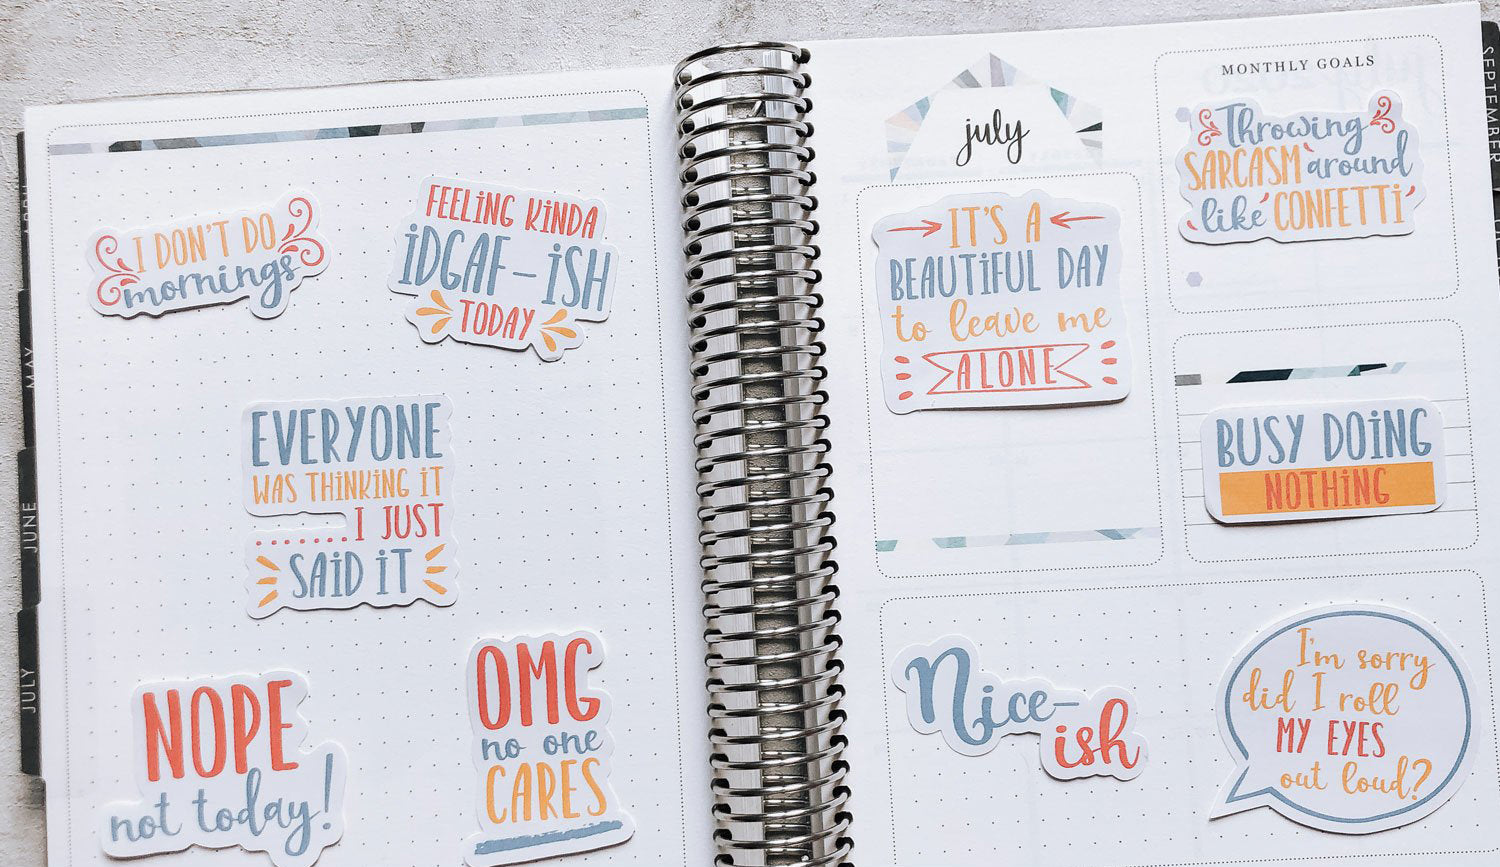 I DON'T DO
mornings
FEELING KINDA
iDGAF-iSH
TODAY
EVERYONE
WAS THiNKiNG iT
........I JUST
SAiD iT
NOPE
not today!
OMG
no one
CARES
MAY
JUNE
JULY
july
IT'S A
BEAUTiFUL DAY
to leave me
ALONE
MONTHLY GOALS
Throwing
SARCASM around
like CONFETTi
BUSY DOiNG
NOTHiNG
Nice-
ish
I'm sorry
did I roll
MY EYES
out loud?
SEPTEMBER